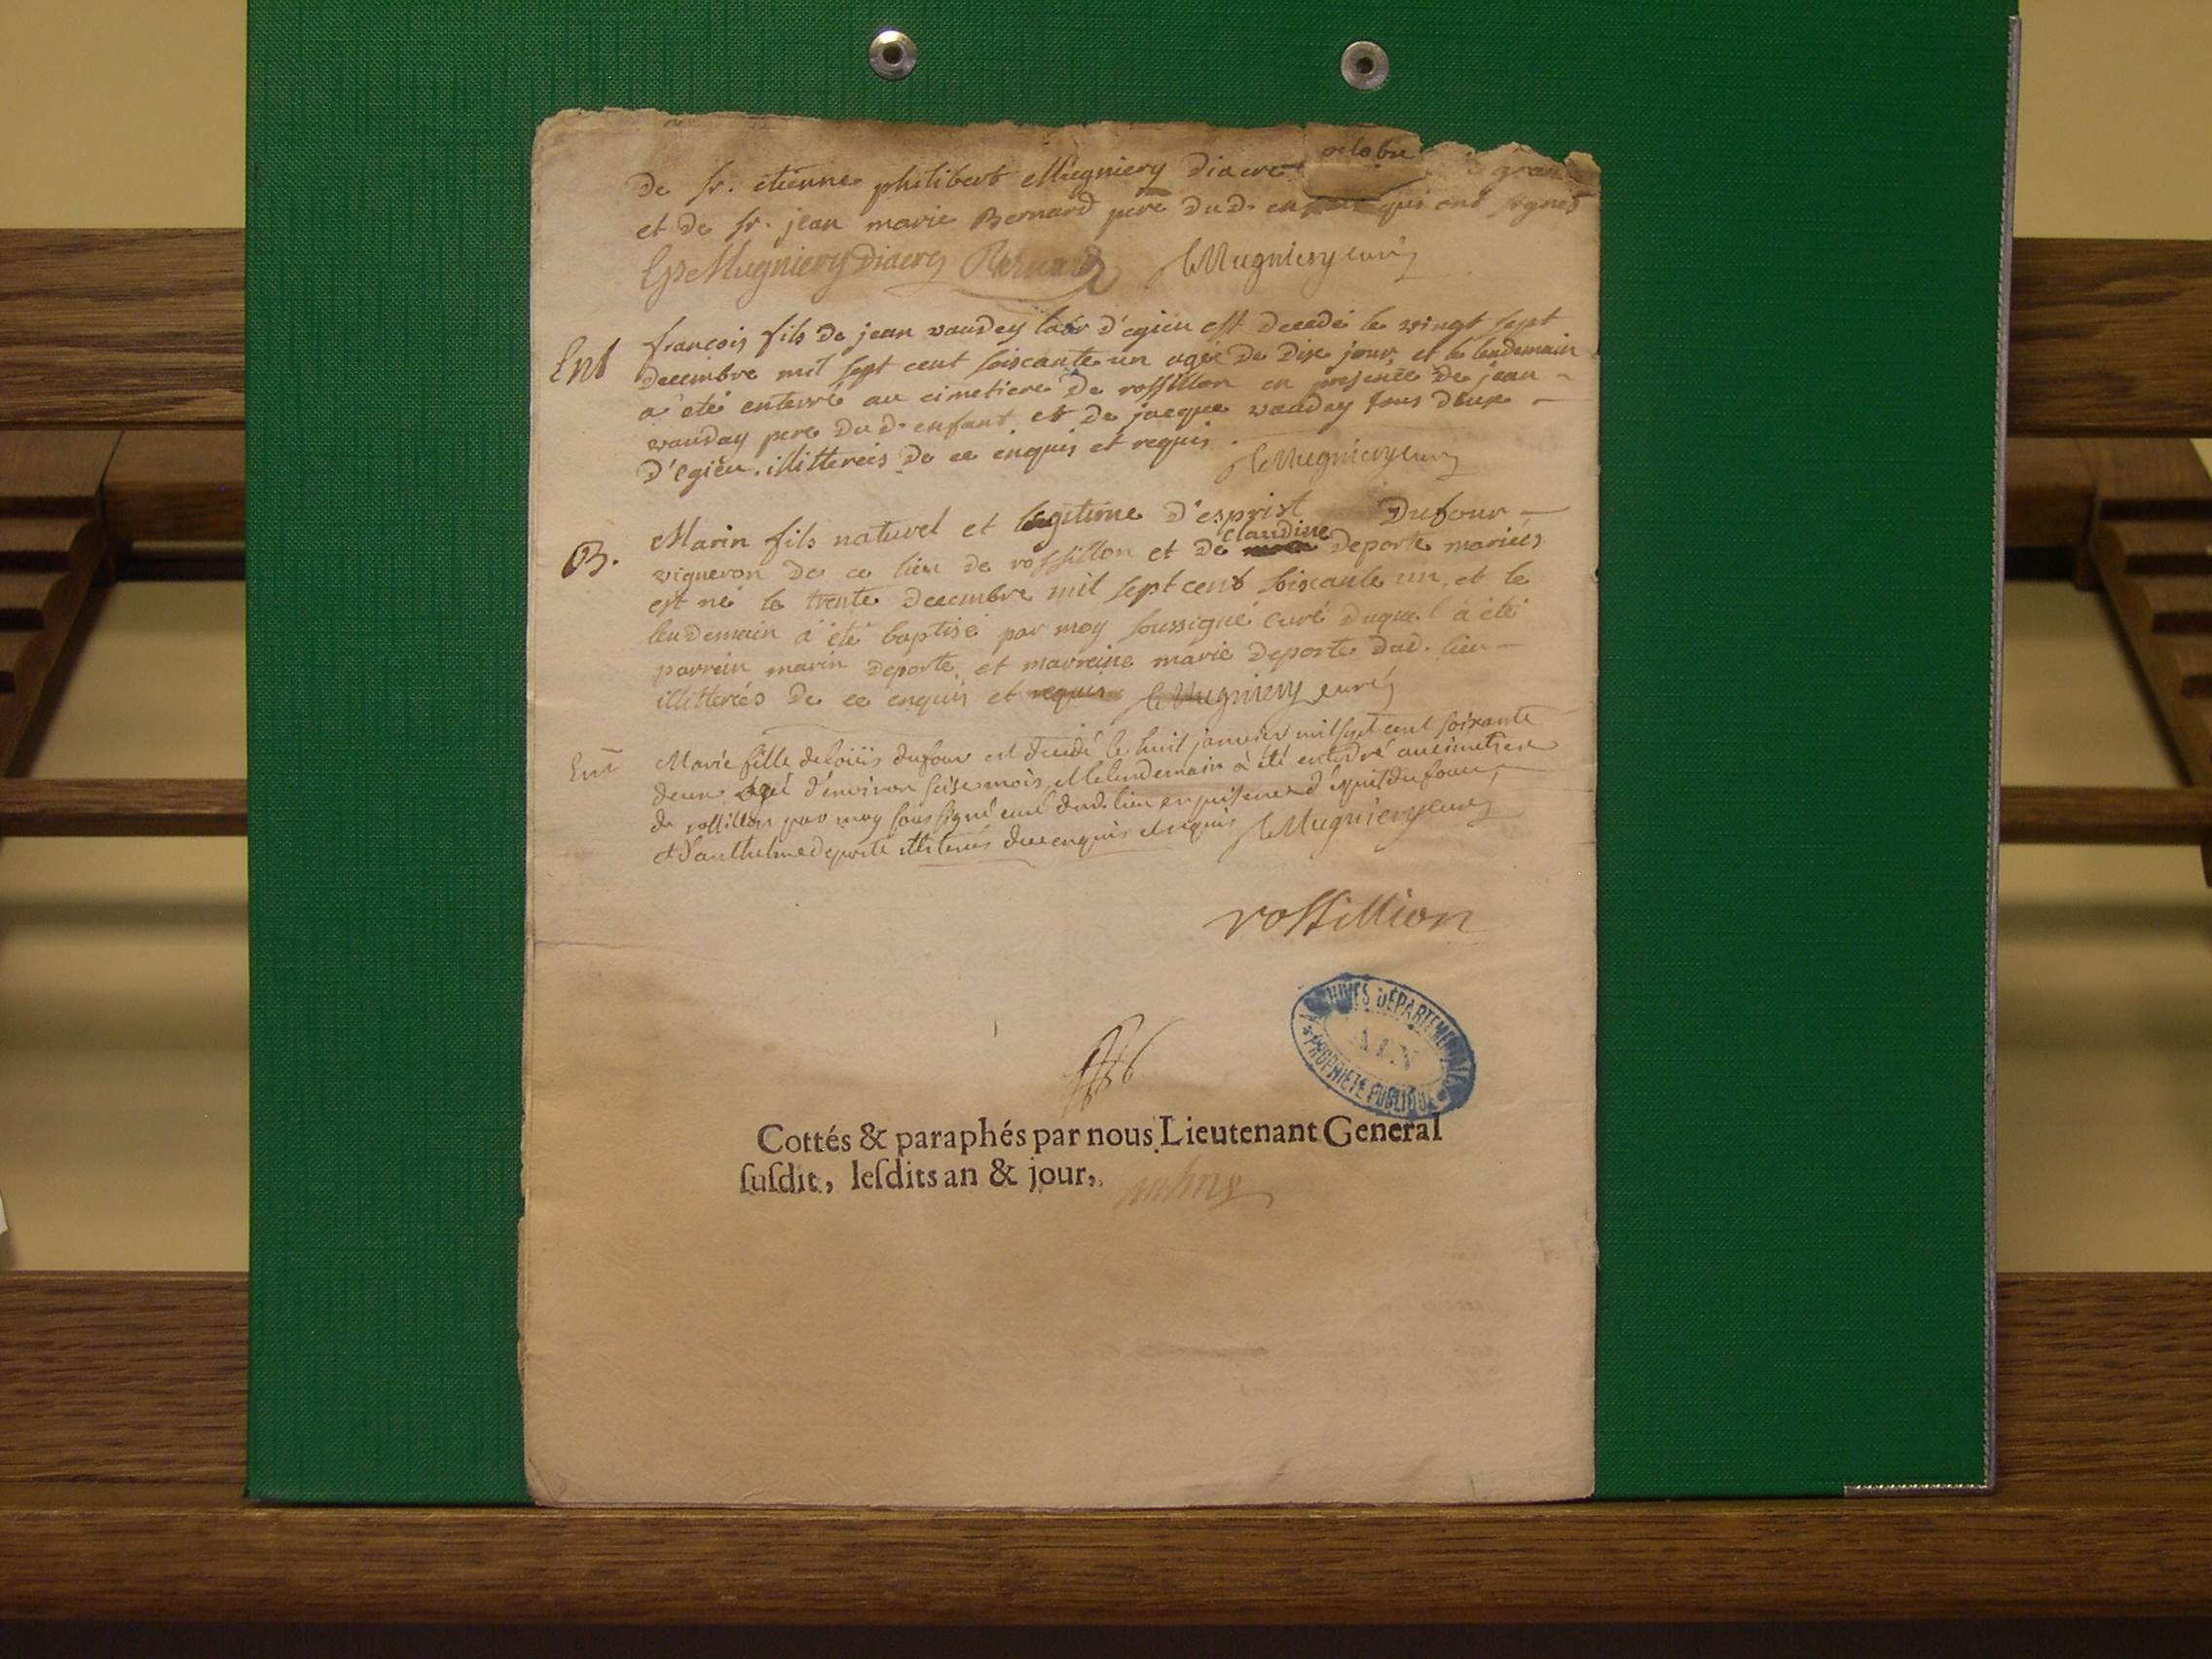 octobre
De sr. etienne philibert Mugniery diacre
et de sr. jean marie Bernard pere dud. enfant qui ont signés
EpMugniery diacre Bernard Mugniery curé
Ent
françois fils de jean vauday labr d'egieu est decedé le vingt sept
decembre mil sept cent soiscante un agée de dix jour, et le lendemain
a eté enterré au cimetiere de rossillon en presence de jean
vauday pere dud. enfant et de jacque vauday tous deux
d'egieu. illitterés de ce enquis et requis. Mugniery curé
B.
Marin fils naturel et legitime d'esprist Dufour
vigneron de ce lieu de rossillon et de claudine deporte mariés
est né le trente decembre mil sept cent soiscante un, et le
lendemain a été baptisé par moy soussigné curé duquel a eté
parrein marin deporte, et marreine marie deporte dud. lieu
illitterés de ce enquis et requis Mugniery curé
Ent
Marie fille de loüis dufour est decedé le huit janvier mil sept cent soixante
deux agé d'environ seise mois, et le lendemain à été enterré au cimetiere
de rossillon par moy soussigné curé dud. lieu en presence d'esprit du four,
et d'anthelme deporte illiterés de ce enquis et requis Mugniery curé
rossillion
ARCHIVES DEPARTEMENTALES
AIN
PROPRIETE PUBLIQUE
Cottés & paraphés par nous Lieutenant General
ſuſdit, leſdits an & jour,